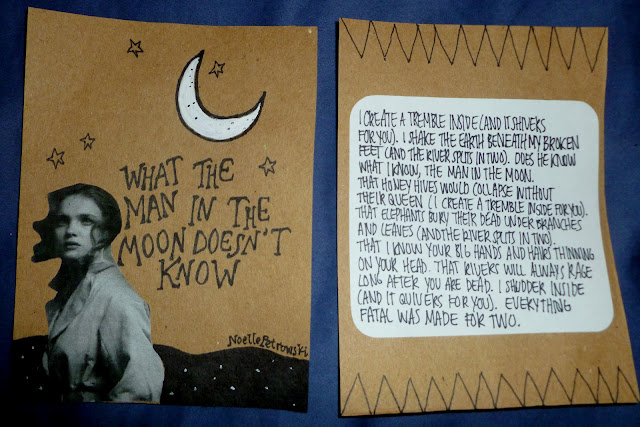 WHAT THE
MAN IN THE
MOON DOESN'T
KNOW
Noelle Petrowski
I CREATE A TREMBLE INSIDE (AND IT SHIVERS
FOR YOU). I SHAKE THE EARTH BENEATH MY BROKEN
FEET (AND THE RIVER SPLITS IN TWO). DOES HE KNOW
WHAT I KNOW, THE MAN IN THE MOON.
THAT HONEY HIVES WOULD COLLAPSE WITHOUT
THEIR QUEEN (I CREATE A TREMBLE INSIDE FOR YOU).
THAT ELEPHANTS BURY THEIR DEAD UNDER BRANCHES
AND LEAVES (AND THE RIVER SPLITS IN TWO).
THAT I KNOW YOUR BIG HANDS AND HAIRS THINNING
ON YOUR HEAD. THAT RIVERS WILL ALWAYS RAGE
LONG AFTER YOU ARE DEAD. I SHUDDER INSIDE
(AND IT QUIVERS FOR YOU). EVERYTHING
FATAL WAS MADE FOR TWO.